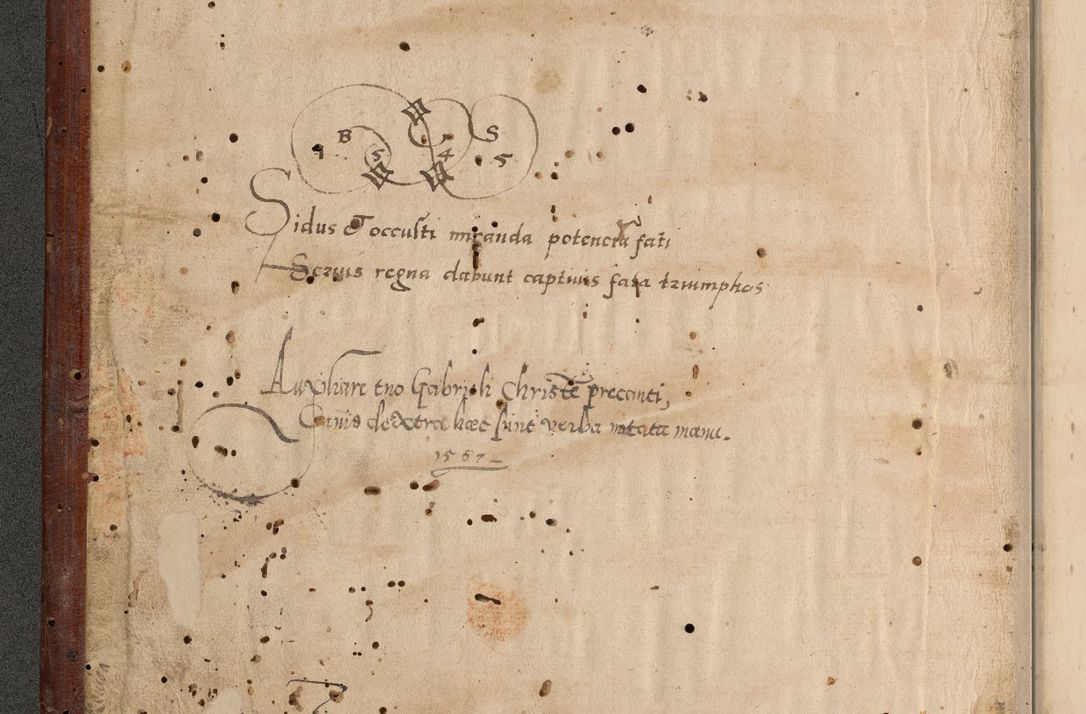 B S
9 5 4 5
Sidus & occulti miranda potencia fati
Servis regna dabunt captivis fata triumphos
Auxiliare tuo Gabrieli Christe precanti,
Cuius dextra haec sunt verba notata manu.
1567